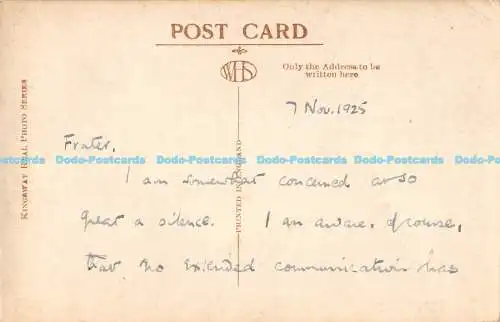 POST CARD
WHS
Only the Address to be
written here
KINGSWAY REAL PHOTO SERIES
PRINTED IN ENGLAND
7 Nov. 1925
Frater,
I am somewhat concerned at so
great a silence. I am aware, of course,
that no extended communication has
Dodo-Postcards Dodo-Postcards Dodo-Postcards Dodo-Postcards Dodo-Postcards Dodo-Postcards